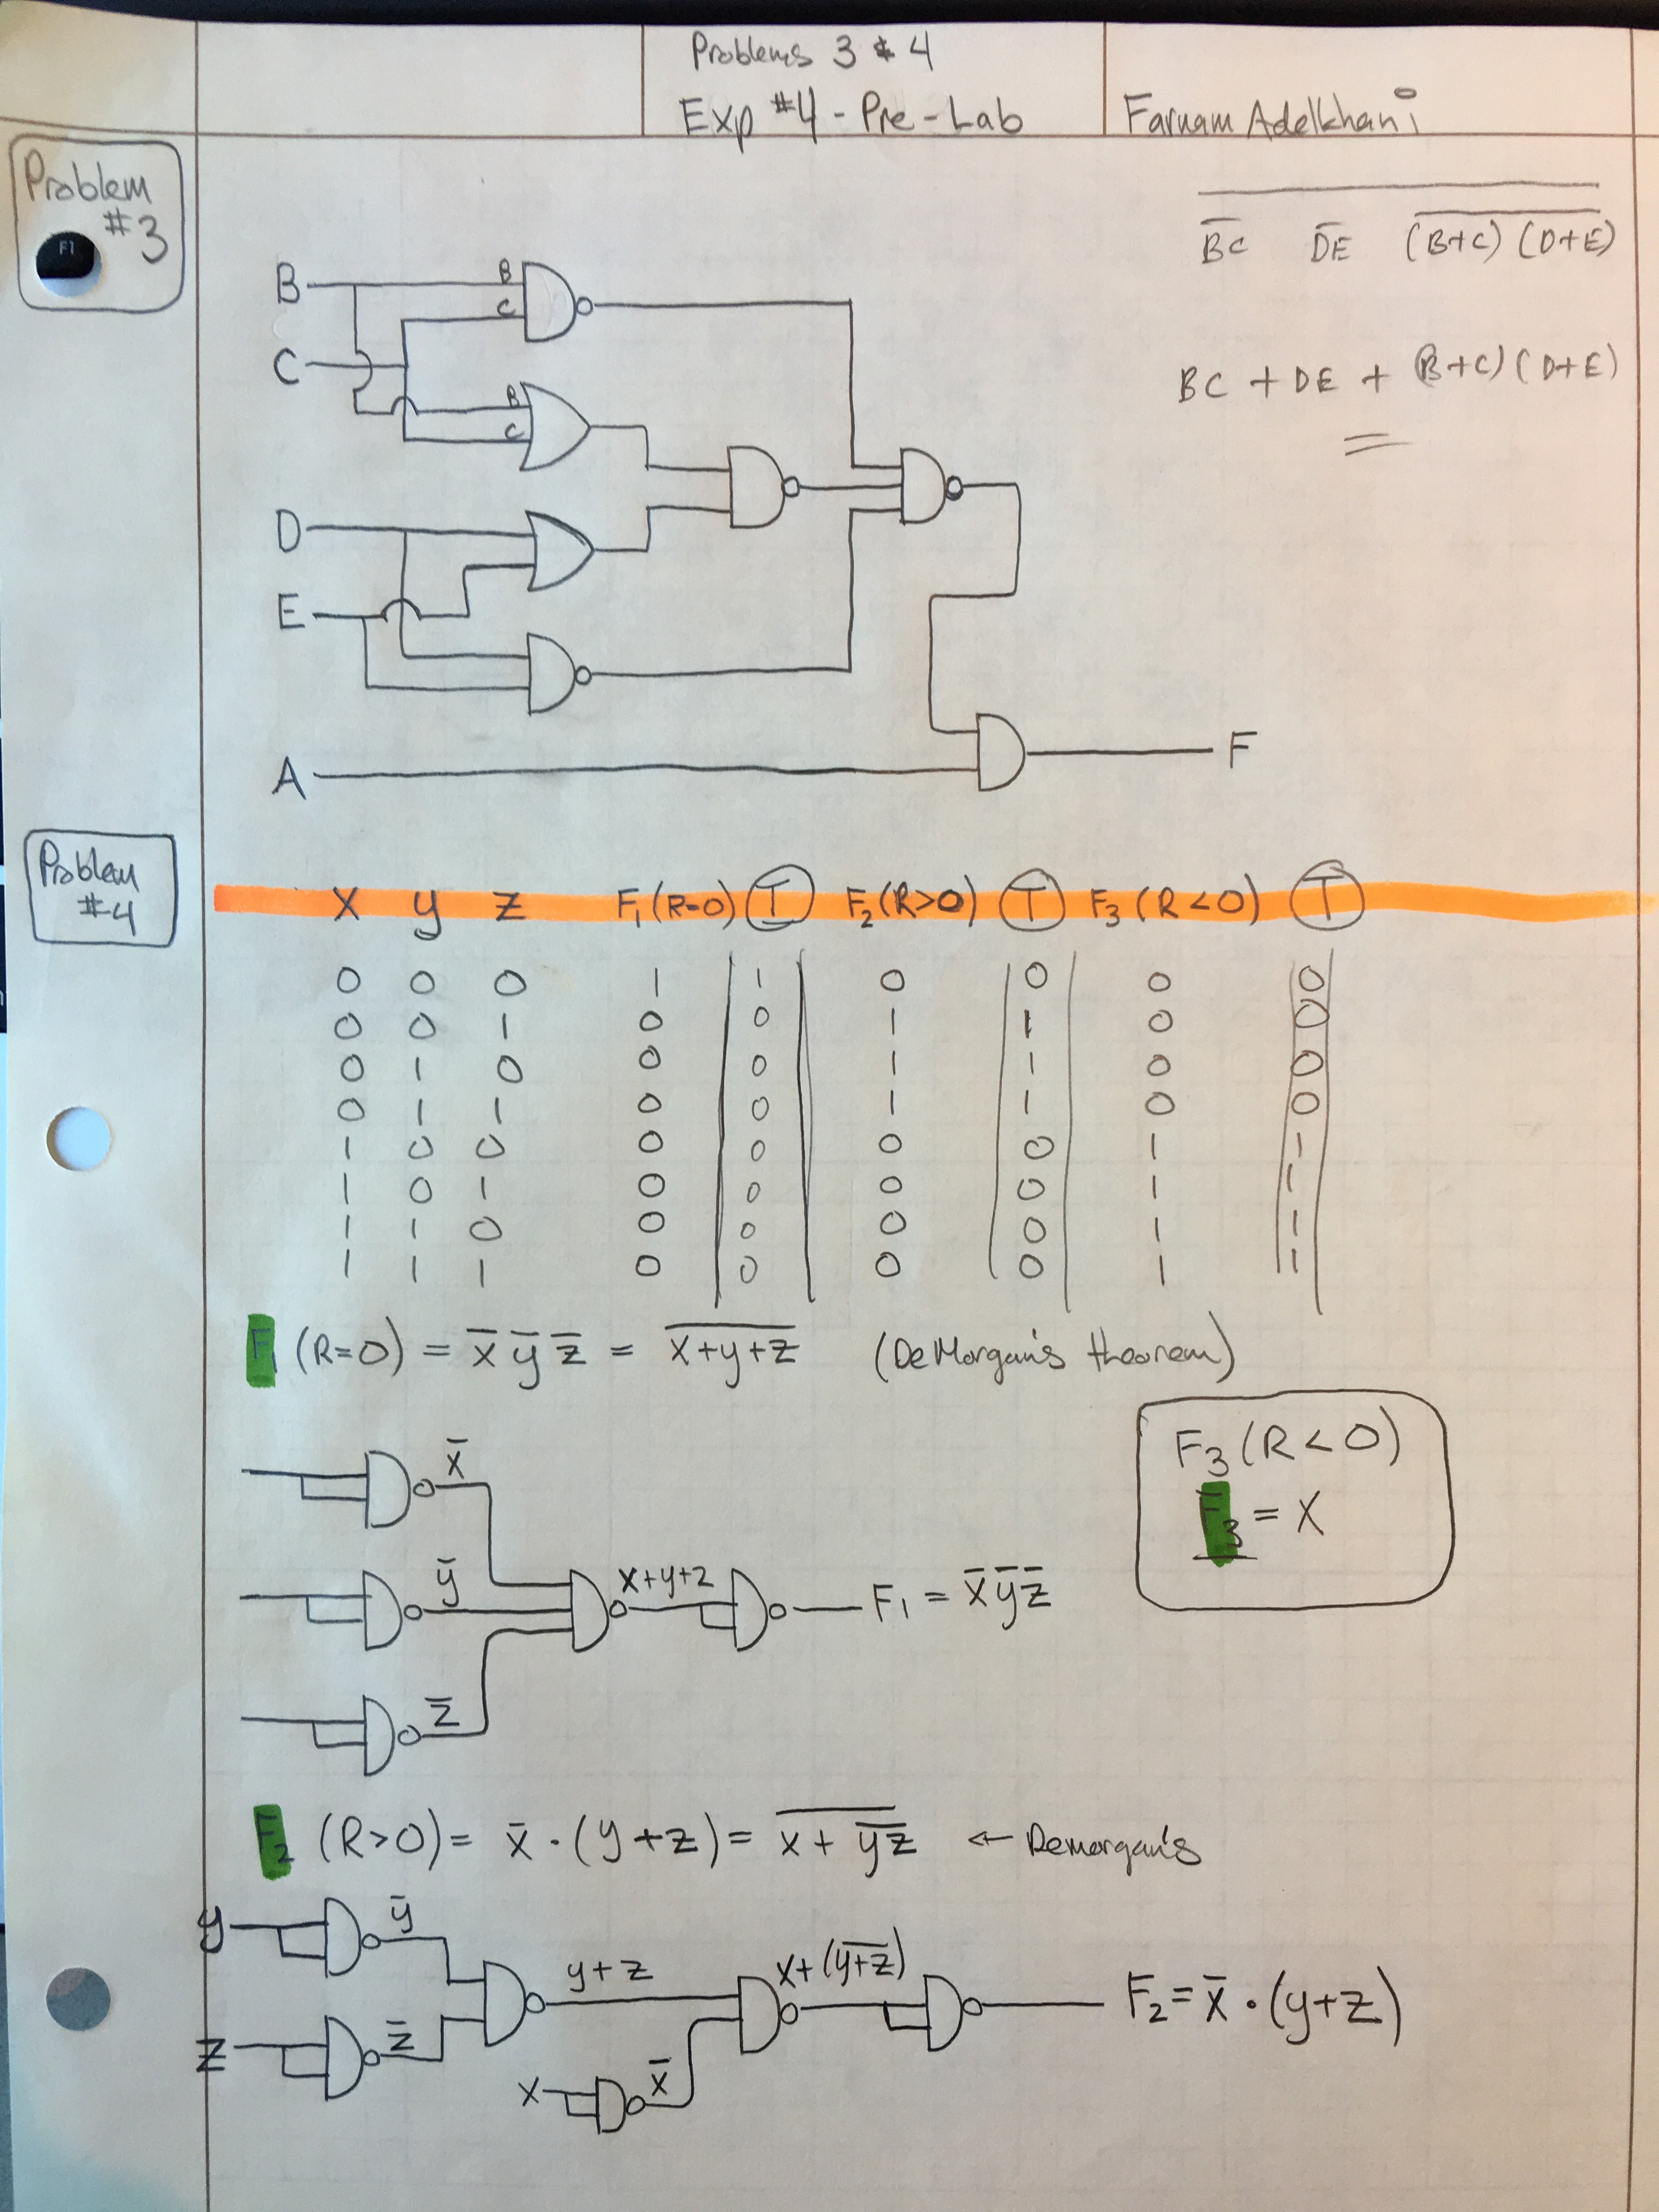 Problems 3 & 4
Exp #4 - Pre-Lab
Farnam Adelkhani
Problem
#3
F1
B̅C̅ D̅E̅ (B+C)(D+E)
BC + DE + (B+C)(D+E)
B
B
C
C
B
C
D
E
A
F
Problem
#4
X y z F₁(R=0) T F₂(R>0) T F₃(R<0) T
0 0 0 1 1 0 0 0 0
0 0 1 0 0 1 1 0 0
0 1 0 0 0 1 1 0 0
0 1 1 0 0 1 1 0 0
1 0 0 0 0 0 0 1 1
1 0 1 0 0 0 0 1 1
1 1 0 0 0 0 0 1 1
1 1 1 0 0 0 0 1 1
F₁ (R=0) = x̅ y̅ z̅ = x̅+̅y̅+̅z̅ (DeMorgan's theorem)
F₃(R<0)
F₃ = X
x̅
y̅
x+y+z
F₁ = x̅ y̅ z̅
z̅
F₂ (R>0) = x̅ · (y+z) = x + y̅z̅ ← Demorgan's
y
y̅
y+z
x+(y̅+̅z̅)
F₂ = x̅ · (y+z)
z
z̅
x
x̅